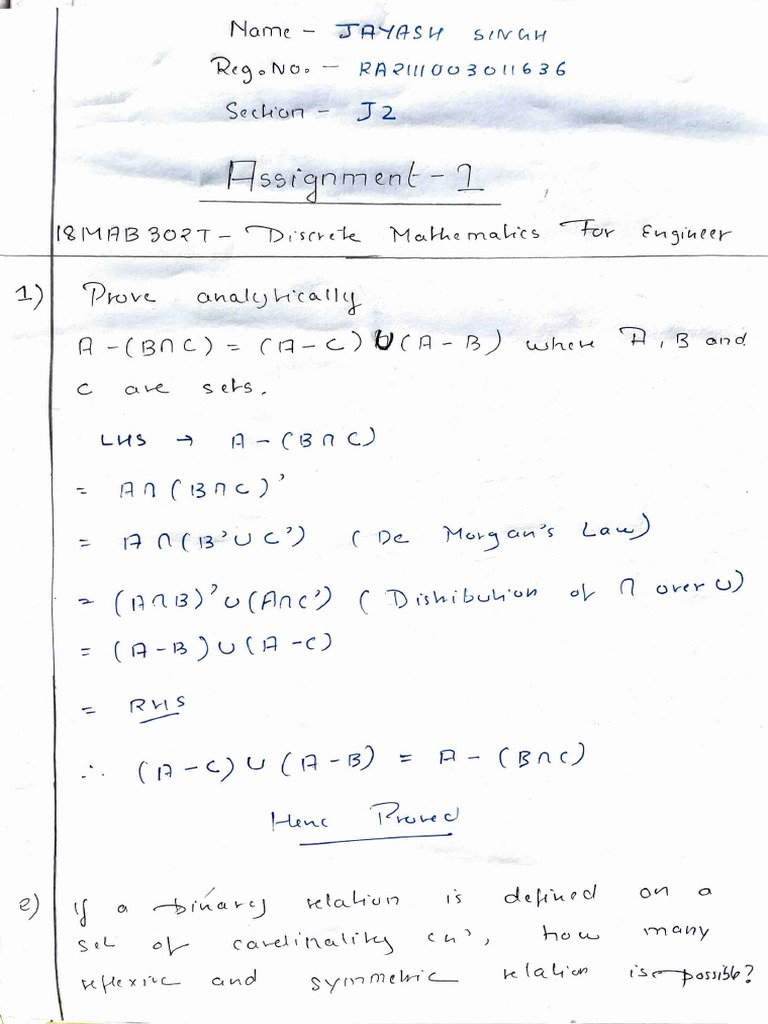 Name - JAYASH SINGH
Reg.No. - RA2111003011636
Section - J2
Assignment - 1
18MAB302T - Discrete Mathematics For Engineer
1) Prove analytically
A - (B∩C) = (A - C) U (A - B) where A, B and
C are sets.
LHS → A - (B∩C)
= A∩(B∩C)'
= A∩(B'∪C') (De Morgan's Law)
= (A∩B)'∪(A∩C') (Distribution of ∩ over ∪)
= (A-B)∪(A-C)
= RHS
∴ (A-C)∪(A-B) = A - (B∩C)
Henc Proved
2) If a binary relation is defined on a
set of cardinality 'n', how many
reflexive and symmetric relation is possible?